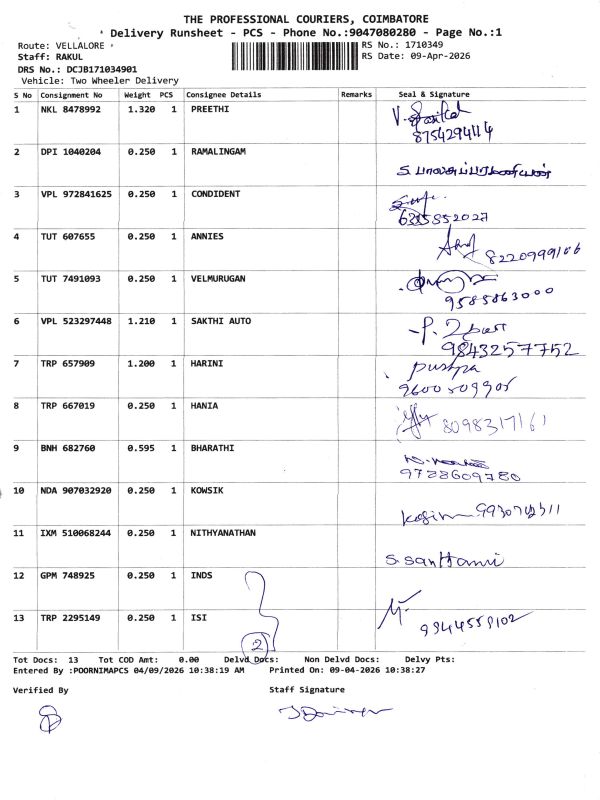 THE PROFESSIONAL COURIERS, COIMBATORE
Delivery Runsheet - PCS - Phone No.:9047080280 - Page No.:1
Route: VELLALORE
RS No.: 1710349
Staff: RAKUL
RS Date: 09-Apr-2026
DRS No.: DCJB171034901
Vehicle: Two Wheeler Delivery
S No Consignment No Weight PCS Consignee Details Remarks Seal & Signature
1 NKL 8478992 1.320 1 PREETHI
8754294114
2 DPI 1040204 0.250 1 RAMALINGAM
S. பாலசுப்பிரமணியன்
3 VPL 972841625 0.250 1 CONDIDENT
6385852027
4 TUT 607655 0.250 1 ANNIES
8220999106
5 TUT 7491093 0.250 1 VELMURUGAN
9585863000
6 VPL 523297448 1.210 1 SAKTHI AUTO
9843257752
7 TRP 657909 1.200 1 HARINI
pushpa
8 TRP 667019 0.250 1 HANIA
8098317161
9 BNH 682760 0.595 1 BHARATHI
9728609780
10 NDA 907032920 0.250 1 KOWSIK
11 IXM 510068244 0.250 1 NITHYANATHAN
S. Santhami
12 GPM 748925 0.250 1 INDS
13 TRP 2295149 0.250 1 ISI
9944558102
2
Tot Docs: 13 Tot COD Amt: 0.00 Delvd Docs: Non Delvd Docs: Delvy Pts:
Entered By :POORNIMAPCS 04/09/2026 10:38:19 AM Printed On: 09-04-2026 10:38:27
Verified By Staff Signature